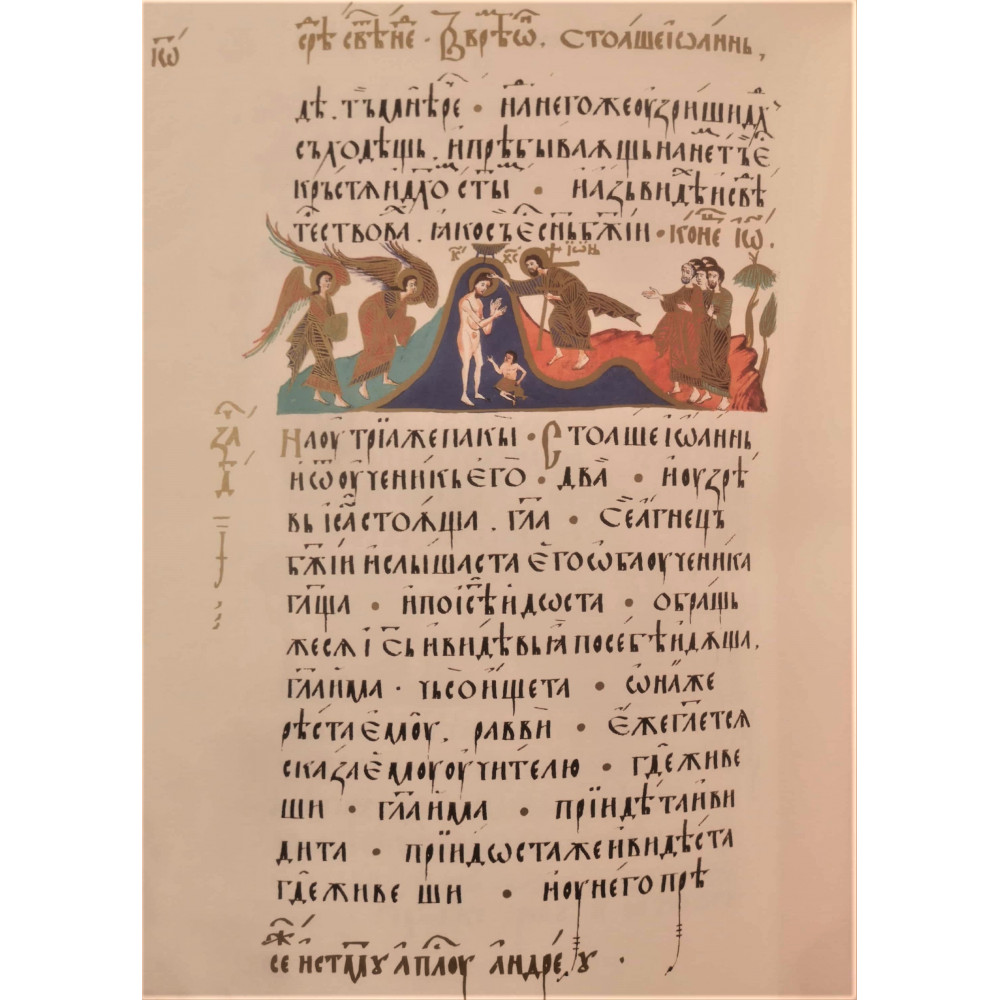 іѡ҃
срѣ свѣ́ щ҃не · Въ врѣ́мѡ҃. стоꙗше і҆ѡа́ннь,
дѣ. тъ мл нѣ ре҃ · на него же оу҆зри́ши дх҃
съходѣщь, и҆ прѣбы́ваꙗщь на не́ тъ е҆
кръстѧи дх҃о ст҃ы · и҆ а́зь ви́дѣ и҆ свѣ
тество́ва. ꙗ҆ко съ е҆ сн҃ь бж҃іи · коне҃ іѡ҃.
іѡн
Наоутріѧ же па́кы · Стоꙗше і҆ѡа́ннь
и҆ ѿ оу҆чени́кь е҆го̀ · два̀ · и҆ оузрѣ́
вь іс҃а стоѧ́ща. гл҃а · Се а҆гнець
бж҃іи и҆ слы́шаста е҆го ѡба оу҆чени́ка
гл҃ща · и҆ по іс҃ѣ и́дѡста · обра́щь
же сѧ іс҃ь и҆ ви́дѣвь ꙗ҆ по себѣ и҆дѧ́ща.
гл҃а и҆ма · чьсо и҆́щета · ѡ҆на́ же
рѣ́ста е҆моу̀. равви̏ · е҆́же гл҃етсѧ
сказае҆мо оу҆чі́телю · гдѣ̀ живе
ши · гл҃а и҆ма · прїидѣ́та и҆ ви
дита · прїидѡста же и҆ ви́дѣста
гдѣ̀ живе ши · и҆ оу него прѣ
се и҆ ст҃мꙋ а҆пл҃оу а҆ндре́ꙋ ·